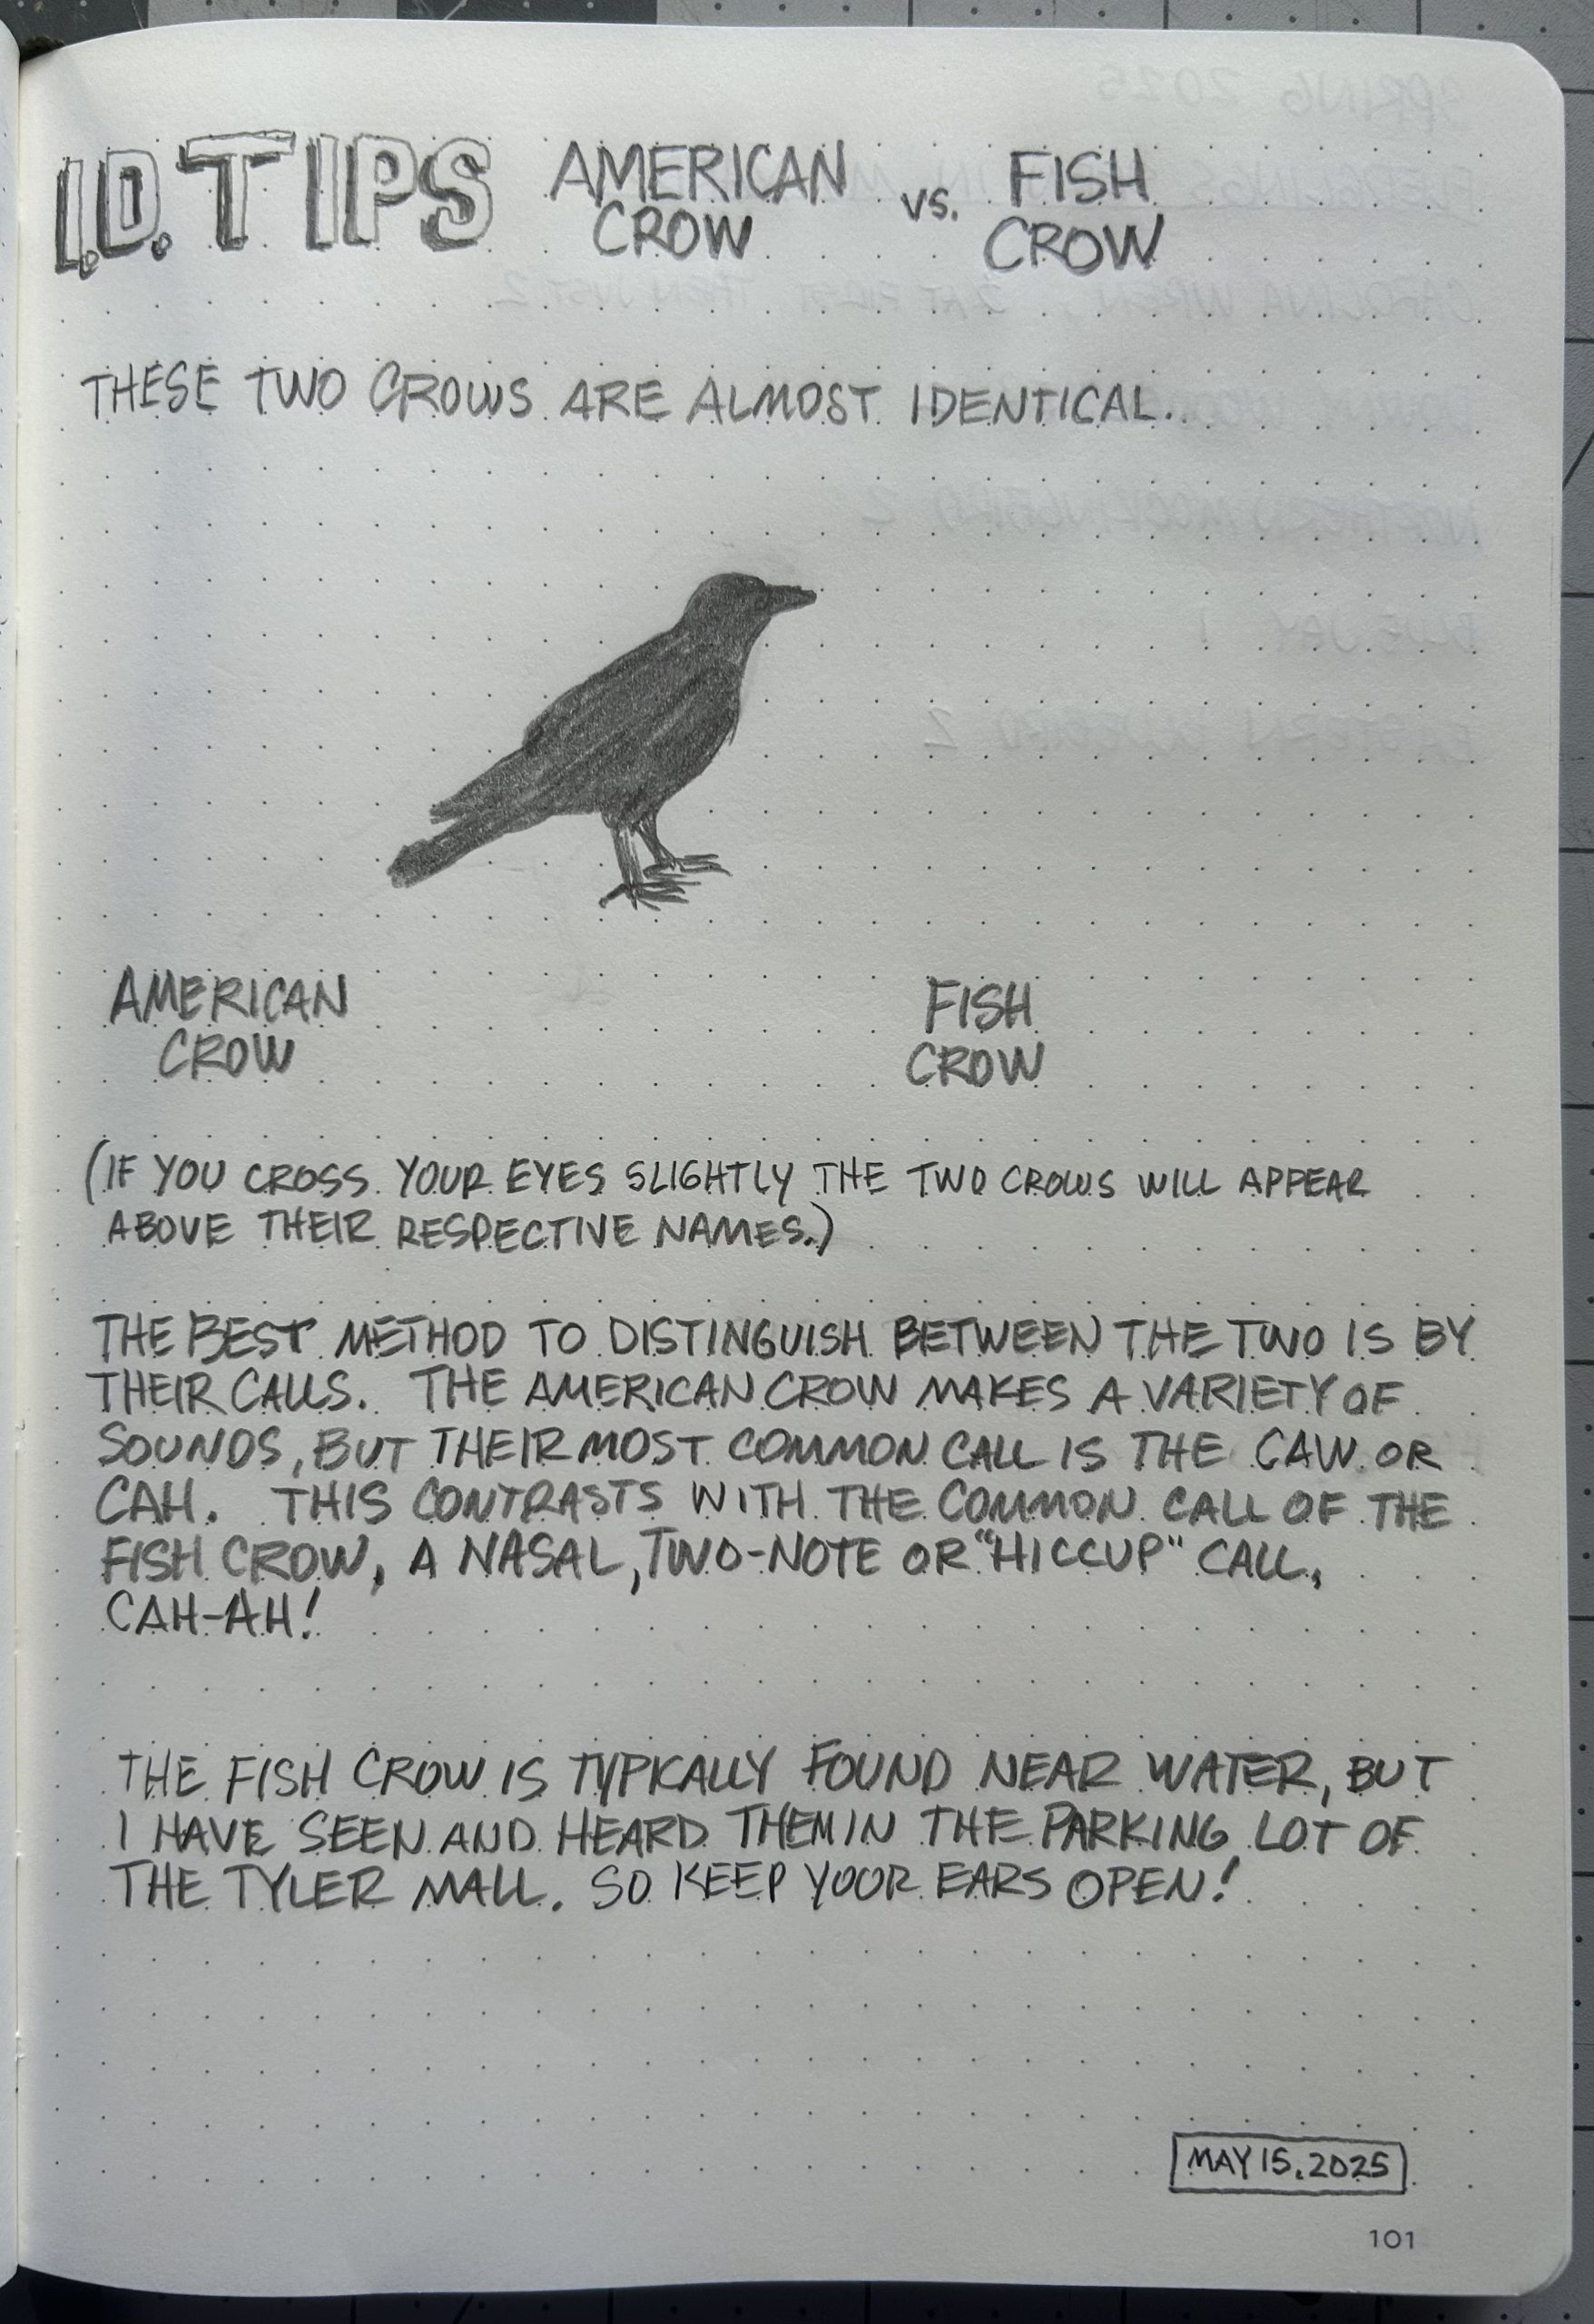 I.D. TIPS AMERICAN CROW vs. FISH CROW
THESE TWO CROWS ARE ALMOST IDENTICAL.
AMERICAN CROW
FISH CROW
(IF YOU CROSS YOUR EYES SLIGHTLY THE TWO CROWS WILL APPEAR
ABOVE THEIR RESPECTIVE NAMES.)
THE BEST METHOD TO DISTINGUISH BETWEEN THE TWO IS BY
THEIR CALLS. THE AMERICAN CROW MAKES A VARIETY OF
SOUNDS, BUT THEIR MOST COMMON CALL IS THE CAW OR
CAH. THIS CONTRASTS WITH THE COMMON CALL OF THE
FISH CROW, A NASAL, TWO-NOTE OR "HICCUP" CALL,
CAH-AH!
THE FISH CROW IS TYPICALLY FOUND NEAR WATER, BUT
I HAVE SEEN AND HEARD THEM IN THE PARKING LOT OF
THE TYLER MALL. SO KEEP YOUR EARS OPEN!
MAY 15, 2025
101